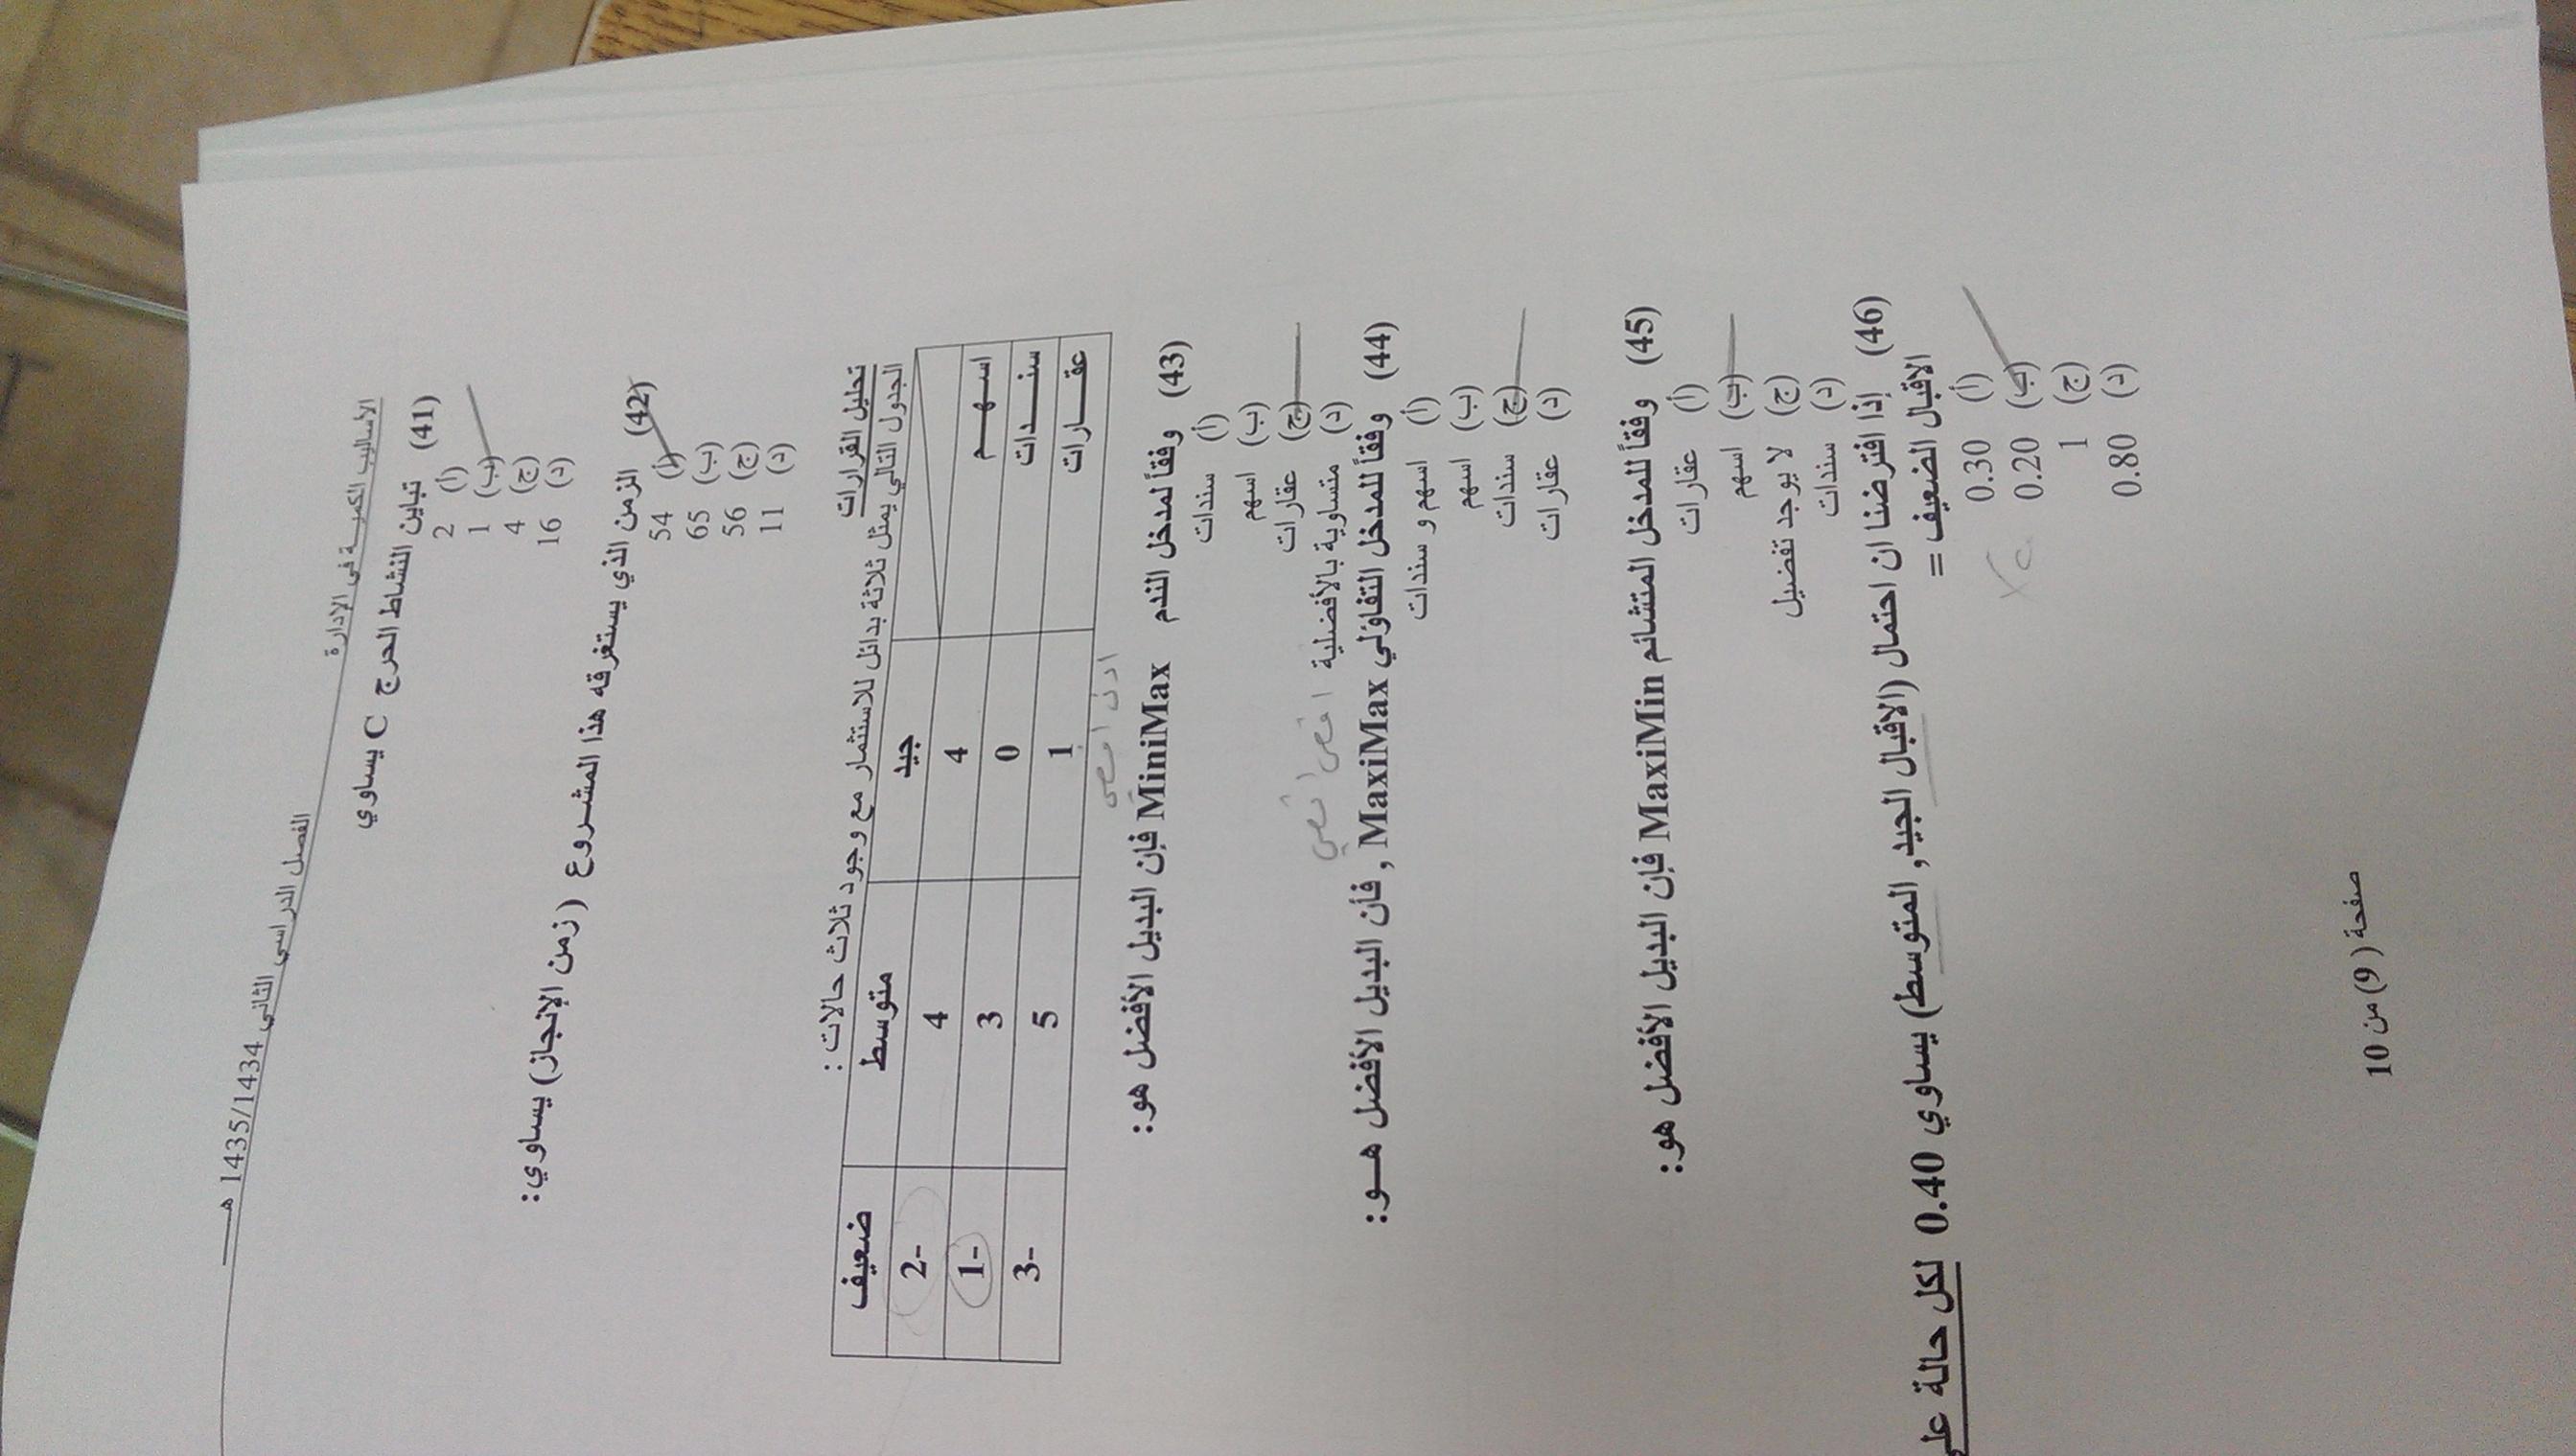 الفصل الدراسي الثاني 1435/1434 هـ
الأساليب الكمية في الإدارة
(41) تباين النشاط الحرج C يساوي
(أ) 2
(ب) 1
(ج) 4
(د) 16
(42) الزمن الذي يستغرقه هذا المشروع (زمن الإنجاز) يساوي:
(أ) 54
(ب) 65
(ج) 56
(د) 11
تحليل القرارات
الجدول التالي يمثل ثلاثة بدائل للاستثمار مع وجود ثلاث حالات :
جيد متوسط ضعيف
اسهم 4 4 2-
سندات 0 3 1-
عقارات 1 5 3-
ادنى اقصى
(43) وفقاً لمدخل الندم MiniMax فإن البديل الأفضل هو:
(أ) سندات
(ب) اسهم
(ج) عقارات
(د) متساوية بالأفضلية
اقصى اقصى
(44) وفقاً للمدخل التفاؤلي MaxiMax , فأن البديل الأفضل هو:
(أ) اسهم و سندات
(ب) اسهم
(ج) سندات
(د) عقارات
(45) وفقاً للمدخل المتشائم MaxiMin فإن البديل الأفضل هو:
(أ) عقارات
(ب) اسهم
(ج) لا يوجد تفضيل
(د) سندات
(46) إذا افترضنا ان احتمال (الاقبال الجيد, المتوسط) يساوي 0.40 لكل حالة على
الاقبال الضعيف =
(أ) 0.30
(ب) 0.20
(ج) 1
(د) 0.80
صفحة (9) من 10